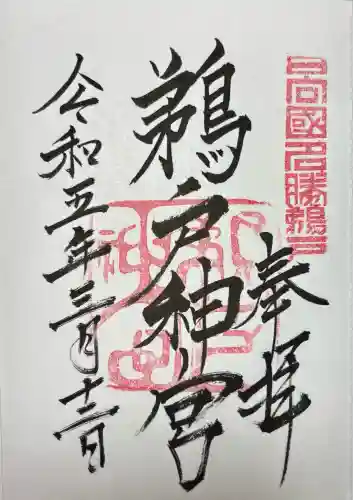 日向國名勝鵜戸
奉拝
鵜戸神宮
令和五年三月十二日